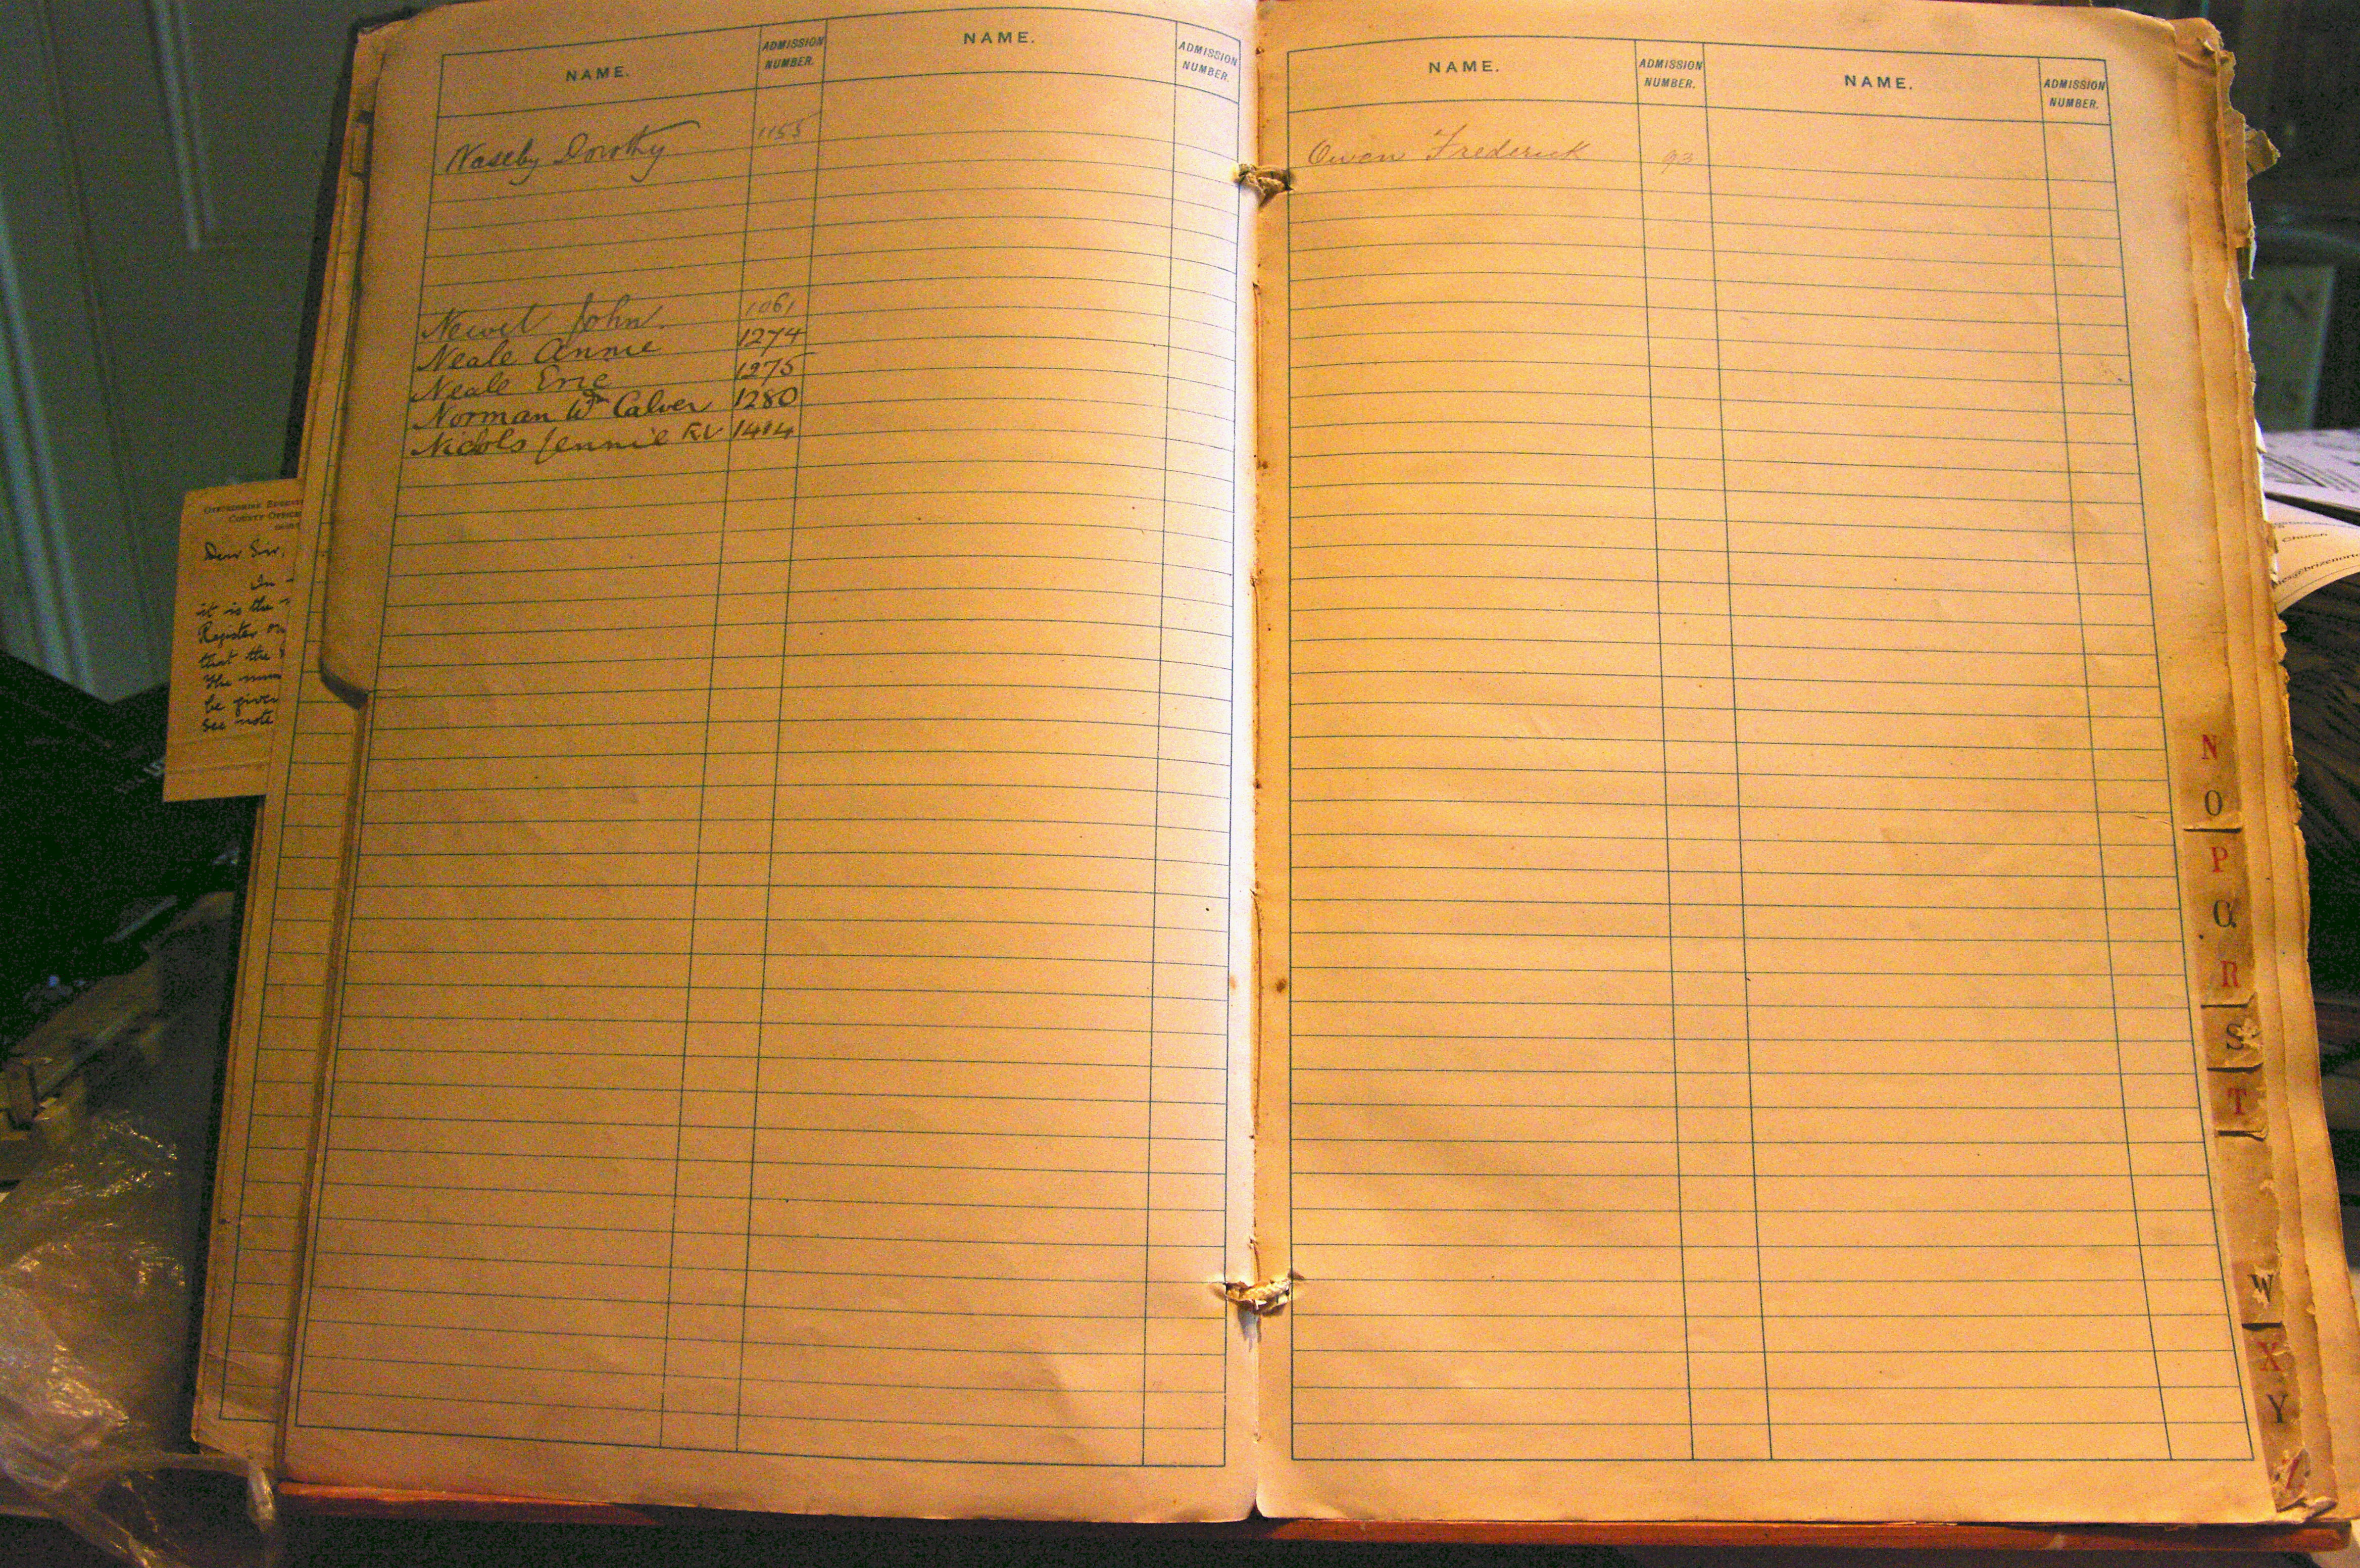 NAME. ADMISSION NUMBER. NAME. ADMISSION NUMBER.
Naseby Dorothy 1155
Newel John. 1061
Neale Annie 1274
Neale Eric 1275
Norman Wm Calver 1280
Nichols Jennie R.V 1414
Dear Sir,
In
it is the
Register
that the
The
be given
See note
NAME. ADMISSION NUMBER. NAME. ADMISSION NUMBER.
Owen Frederick 93
Church
N
O
P
Q
R
S
T
W
X
Y
Z